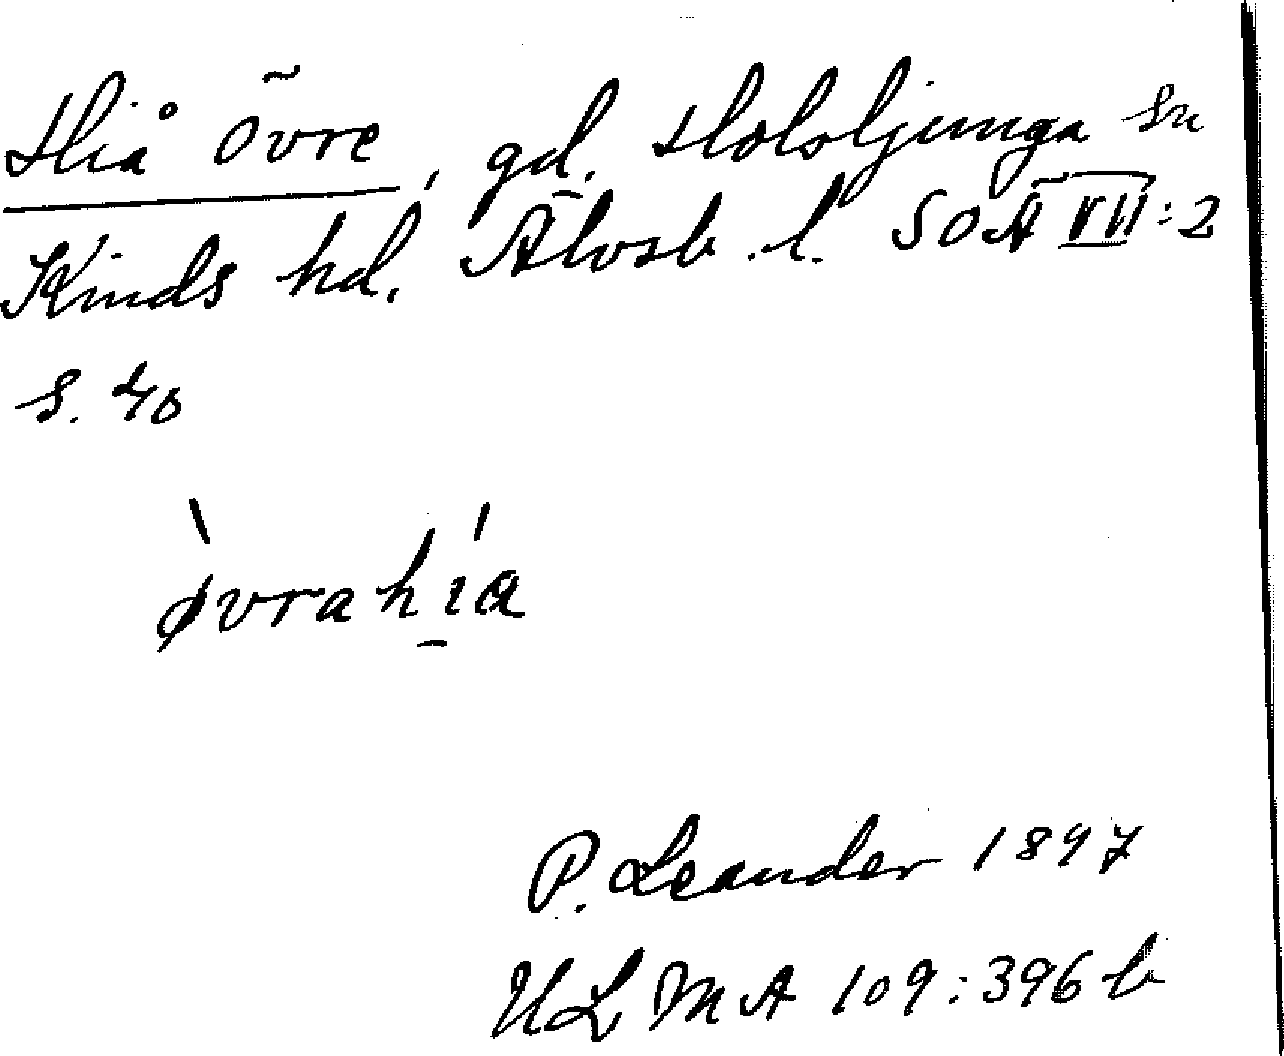 Hiå Övre, gd. Holsljunga sn
Kinds hd. Älvsb. l. SOÄ VII:2
s. 40
øvrahia
P. Leander 1897
ULMA 109:396 b